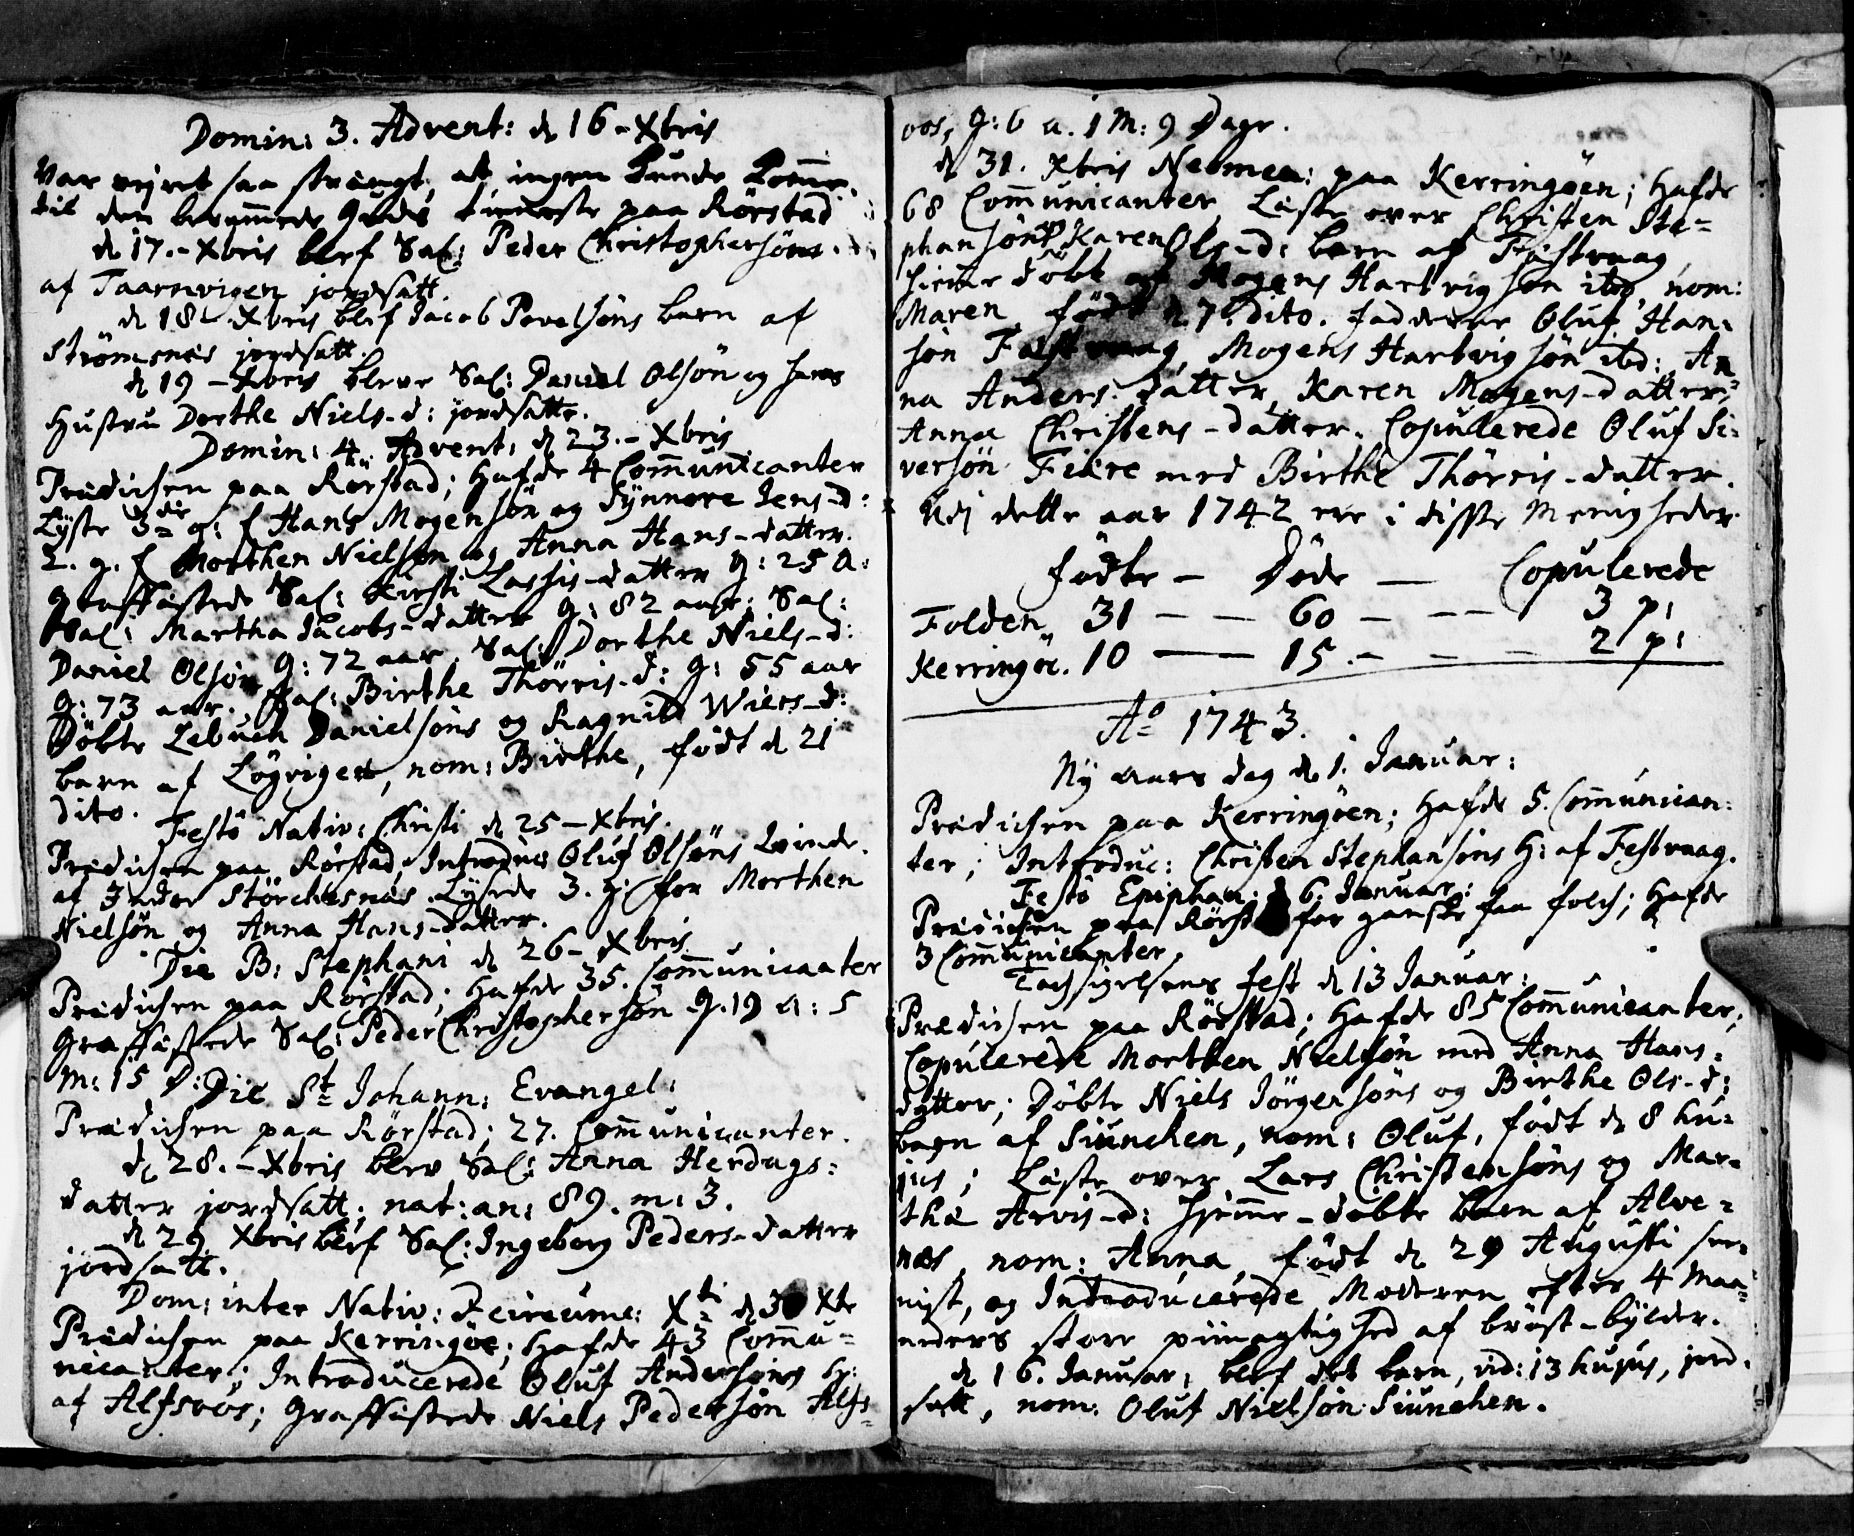 Domin: 3. Advent: d 16 - Xbris
Var vejret saa strængt, at ingen kunde komme
til den berammede Guds tieneste paa Rörstad
d 17. - Xbris blef Sal: Peder Christophersön
af Taarnvigen jordsatt.
d 18 - Xbris blef Jacob Povelsöns barn af
Strömsnæs jordsatt.
d 19 - Xbris bleve Sal: Daniel Olsön og hans
Hustru Dorthe Niels-d: jordsatte.
Domin: 4. Advent: d 23. - Xbris
Prædichen paa Rörstad; Hafde 4 Communicanter
Lyste 3die g: f Hans Mogensön og Synnove Jens-d:
2. g. f Morthen Nielsön og Anna Hans-datter.
Graffæstede Sal: Kirsti Lassis-datter g: 25 a:
Sal: Martha Jacobs-datter g: 82 aar: Sal:
Daniel Olsön g: 72 aar, Sal: Dorthe Niels-d:
g: 73 aar. Sal: Birthe Thörris-d: g: 55 aar
Döbte Zebuch Danielsöns og Ragnild Wiers-d:
barn af Lögvigen, nom: Birthe, født d 21
dito.
Festo Nativ: Christi d 25 - Xbris.
Prædichen paa Rörstad, Introduc: Oluf Olsöns Qvinde.
af Indre Störchesnæs. Lysede 3. g: for Morthen
Nielsön og Anna Hans-datter.
Die B: Stephani d 26 - Xbris
Prædichen paa Rörstad; Hafde 35. Communicanter
Graffæstede Sal: Peder Christophersön g. 19 a: 5
m: 15 D:
Die St Johann: Evangel:
Prædichen paa Rörstad; 27. Communicanter.
d 28. - Xbris blev Sal: Anna Herdags:
datter jordsatt; nat: an: 89. m: 3.
d 29 Xbris blef Sal: Ingeborg Peders-datter
jordsatt.
Dom: inter Nativ: & circume: Xti d 30 Xbr
Prædichen paa Kerringöe; Hafde 43 Commu-
nicanter; Introducerede Oluf Andersöns H:
af Alfsvos; Graffæstede Niels Pedersön Alfs-
vos, g: 6 a. 1 M: 9 Dage.
d 31. Xbris paa Kerringöen; Hafde
68 Communicanter, Læste over Christen Ste-
phansöns & Karen Ols-d: barn af Festvaag
hieme döbt af Mogens Hartvigsøn ibd, nom:
Maren, født d. 7. dito. Fadderne Oluf Han-
sön Festvaag, Mogens Hartvigsön ibd: An
na Anders-datter, Karen Mogens-datter,
Anna Christens-datter. Copulerede Oluf Si-
versön Fiære med Birthe Thörris-datter.
Udj dette aar 1742 ere i disse Menigheder
Födte - Døde - Copulerede
Folden 31 - - 60 - - - 3 p:
Kerringöe. 10 - 15. - - - 2 p:
Ao 1743.
Ny aars dag d 1. Januar:
Prædichen paa Kerringöen; Hafde 5. Communican-
ter; Introduc: Christen Stephansöns H: af Festvaag.
Festo Epiphan: d 6. Januar:
Prædichen paa Rörstad for ganske faa folch; Hafde
3 Communicanter.
Tachsigelsens Fest d 13 Januar:
Prædichen paa Rörstad; Hafde 85 Communicanter;
Copulerede Morthen Nielsön med Anna Hans-
datter; Döbte Niels Jörgensöns og Birthe Ols-d:
barn af Siunchen, nom: Oluf, født d 8 hu-
jus; Læste over Lars Christensöns og Mar-
tha Arvis-d: hjemme-döbte barn af Alve-
næs, nom: Anna, født d 29 Augusti see-
nist, og Introducerede Moderen efter 4 Maa-
neders store piinagtighed af bröst-bylder.
d 16. Januar: blef det barn, vid: 13 hujus, jord-
satt, nom: Oluf Nielsön Siunchen.